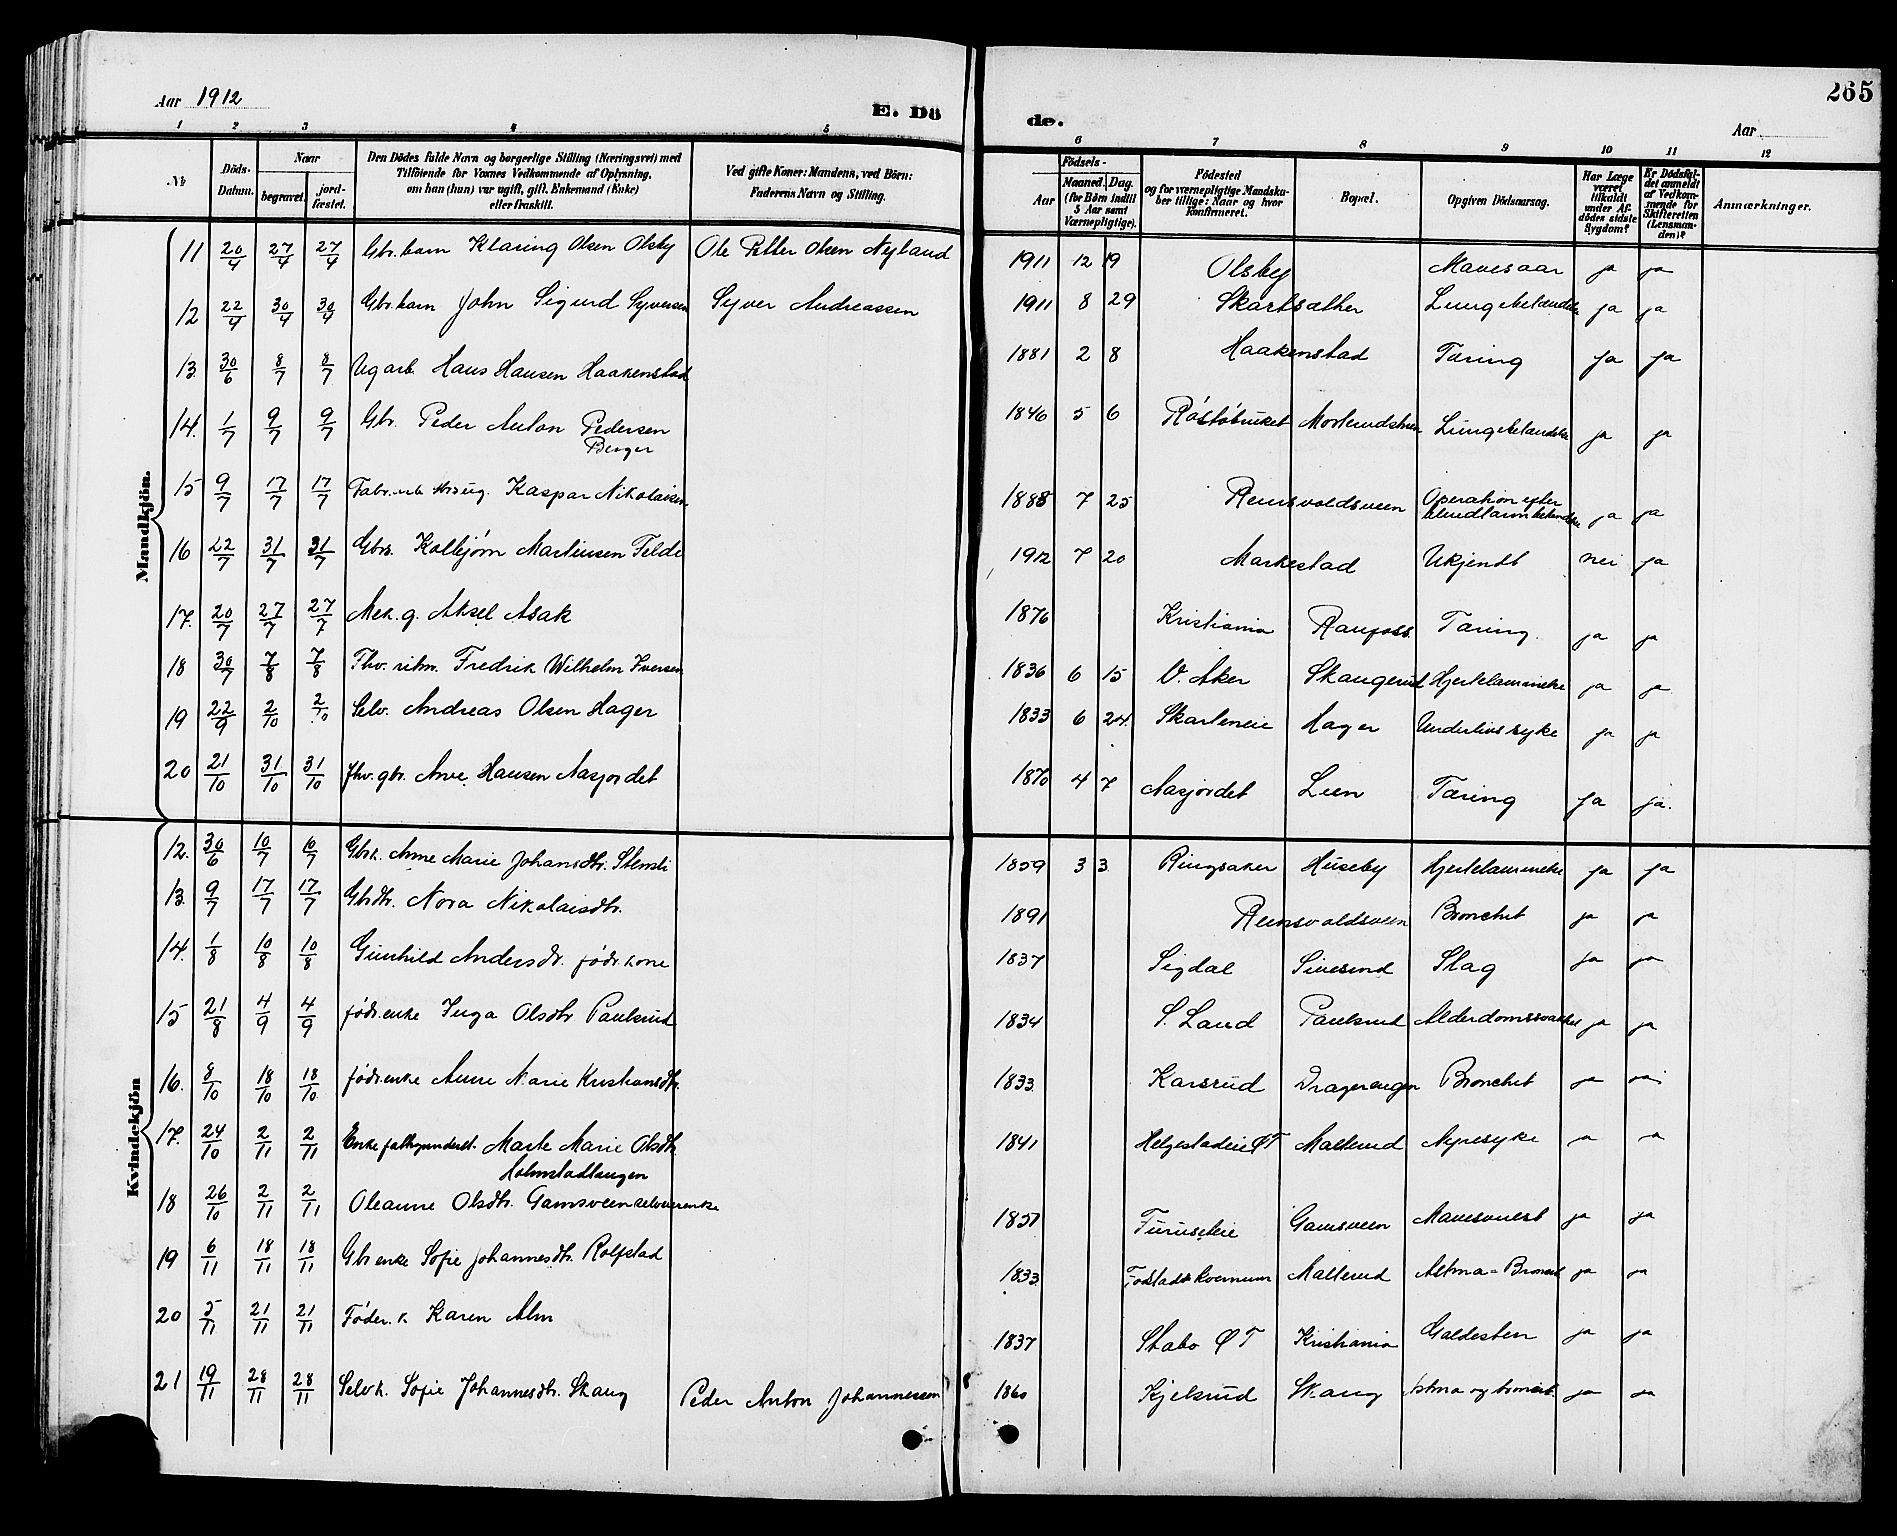 265
Aar 1912
E. Dö
de.
Aar
1 2 3 4 5
6 7 8 9 10 11 12
No
Döds-Datum.
Naar
begravet.
jord-fæstet.
Den Dödes fulde Navn og borgerlige Stilling (Næringsvei) med
Tilföiende for Voxnes Vedkommende af Oplysning,
om han (hun) var ugift, gift, Enkemand (Enke)
eller fraskilt.
Ved gifte Koner: Mandens, ved Börn:
Faderens Navn og Stilling.
Födsels-
Aar
Maaned.
Dag.
(for Börn indtil
5 Aar samt
Værnepligtige).
Födested
og for værnepligtige Mandska-
ber tillige: Naar og hvor
konfirmeret.
Bopæl.
Opgiven Dödsaarsag.
Har Læge
været
tilkaldt
under Af-
dödes sidste
Sygdom?
Er Dödsfal-
det anmeldt
af Vedkom-
mende for
Skifteretten
(Lensman-
den)?
Anmærkninger.
Mandkjön.
11 20/4 27/4 27/4 Gbr. barn Klaring Olsen Olsby Ole Petter Olsen Nyland 1911 12 19 Olsby Mavesaar ja ja
12 22/4 30/4 30/4 Gbr. barn John Sigurd Syversen Syver Andreassen 1911 8 29 Skartsæther Lungebetændelse ja ja
13. 30/6 8/7 8/7 Ug arb. Hans Hansen Haakenstad 1881 2 8 Haakenstad Tæring ja ja
14. 1/7 9/7 9/7 Gbr. Peder Anton Pedersen
Berger 1846 5 6 Røstøbruket Lungebetændelse ja ja
15 9/7 17/7 17/7 Kaspar Nikolaisen 1888 7 25 Reinsvoldsveen Operation efter
blindtarmbetændelse ja ja
16 22/7 31/7 31/7 Gbrs. Kolbjørn Martinsen Felde 1912 7 20 Markestad Ukjendt nei ja
17. 20/7 27/7 27/7 Mek. g. Aksel Asak 1876 Kristiania Raufoss Tæring. ja ja
18 30/7 7/8 7/8 Fhv. ritm. Fredrik Wilhelm Iversen 1836 6 15 V. Aker Skaugerud Hjertelammelse ja ja
19 22/9 2/10 2/10 Selv. Andreas Olsen Hager 1833 6 24. Skarteneie Hager Underlivssyke ja ja
20 21/10 31/10 31/10 Fhv. gbr. Arve Hansen Aasjordet 1870 4 7 Aasjordet Lien Tæring ja ja.
Kvindekjön
12. 30/6 10/7 10/7 Gbrk. Anne Marie Johansdtr. Stensli 1859 3 3 Ringsaker Huseby Hjertelammelse ja ja
13 9/7 17/7 17/7 Gbrdtr. Nora Nikolaisdtr. 1891 Reinsvoldsveen Bronchit ja ja
14. 1/8 10/8 10/8 Gunhild Andersdr. fødr. kone 1837 Sigdal Sivesind Slag ja ja
15 21/8 4/9 4/9 fødr. enke Inga Olsdtr. Paulsrud 1834 S. Land Paulsrud Alderdomssvakhet ja ja
16. 8/10 18/10 18/10 fødr. enke Anne Marie Kristiansdtr. 1833 Karsrud Drageraugen Bronchit ja ja
17. 24/10 2/11 2/11 Enke fattigunderst. Marte Marie Olsdtr.
Holmstadhaugen 1841 Helgestadeie ØT Mallerud Nyresyke ja ja
18 26/10 2/11 2/11 Oleanne Olsdtr. Gamsveen selveierenke 1857 Furuseteie Gamsveen Mavesvulst ja ja
19 6/11 18/11 18/11 Gbr enke Sofie Johannesdtr. Rolfstad 1833 Mallerud Astma = Bronchit ja ja
20 5/11 21/11 21/11 Føder. k. Karen Alm 1837 Stabo ØT Kristiania Galdesten ja ja
21 19/11 28/11 28/11 Selvk. Sofie Johannesdtr. Skaug Peder Anton Johannessen 1860 Kjelsrud Skaug Astma og bronchit ja ja